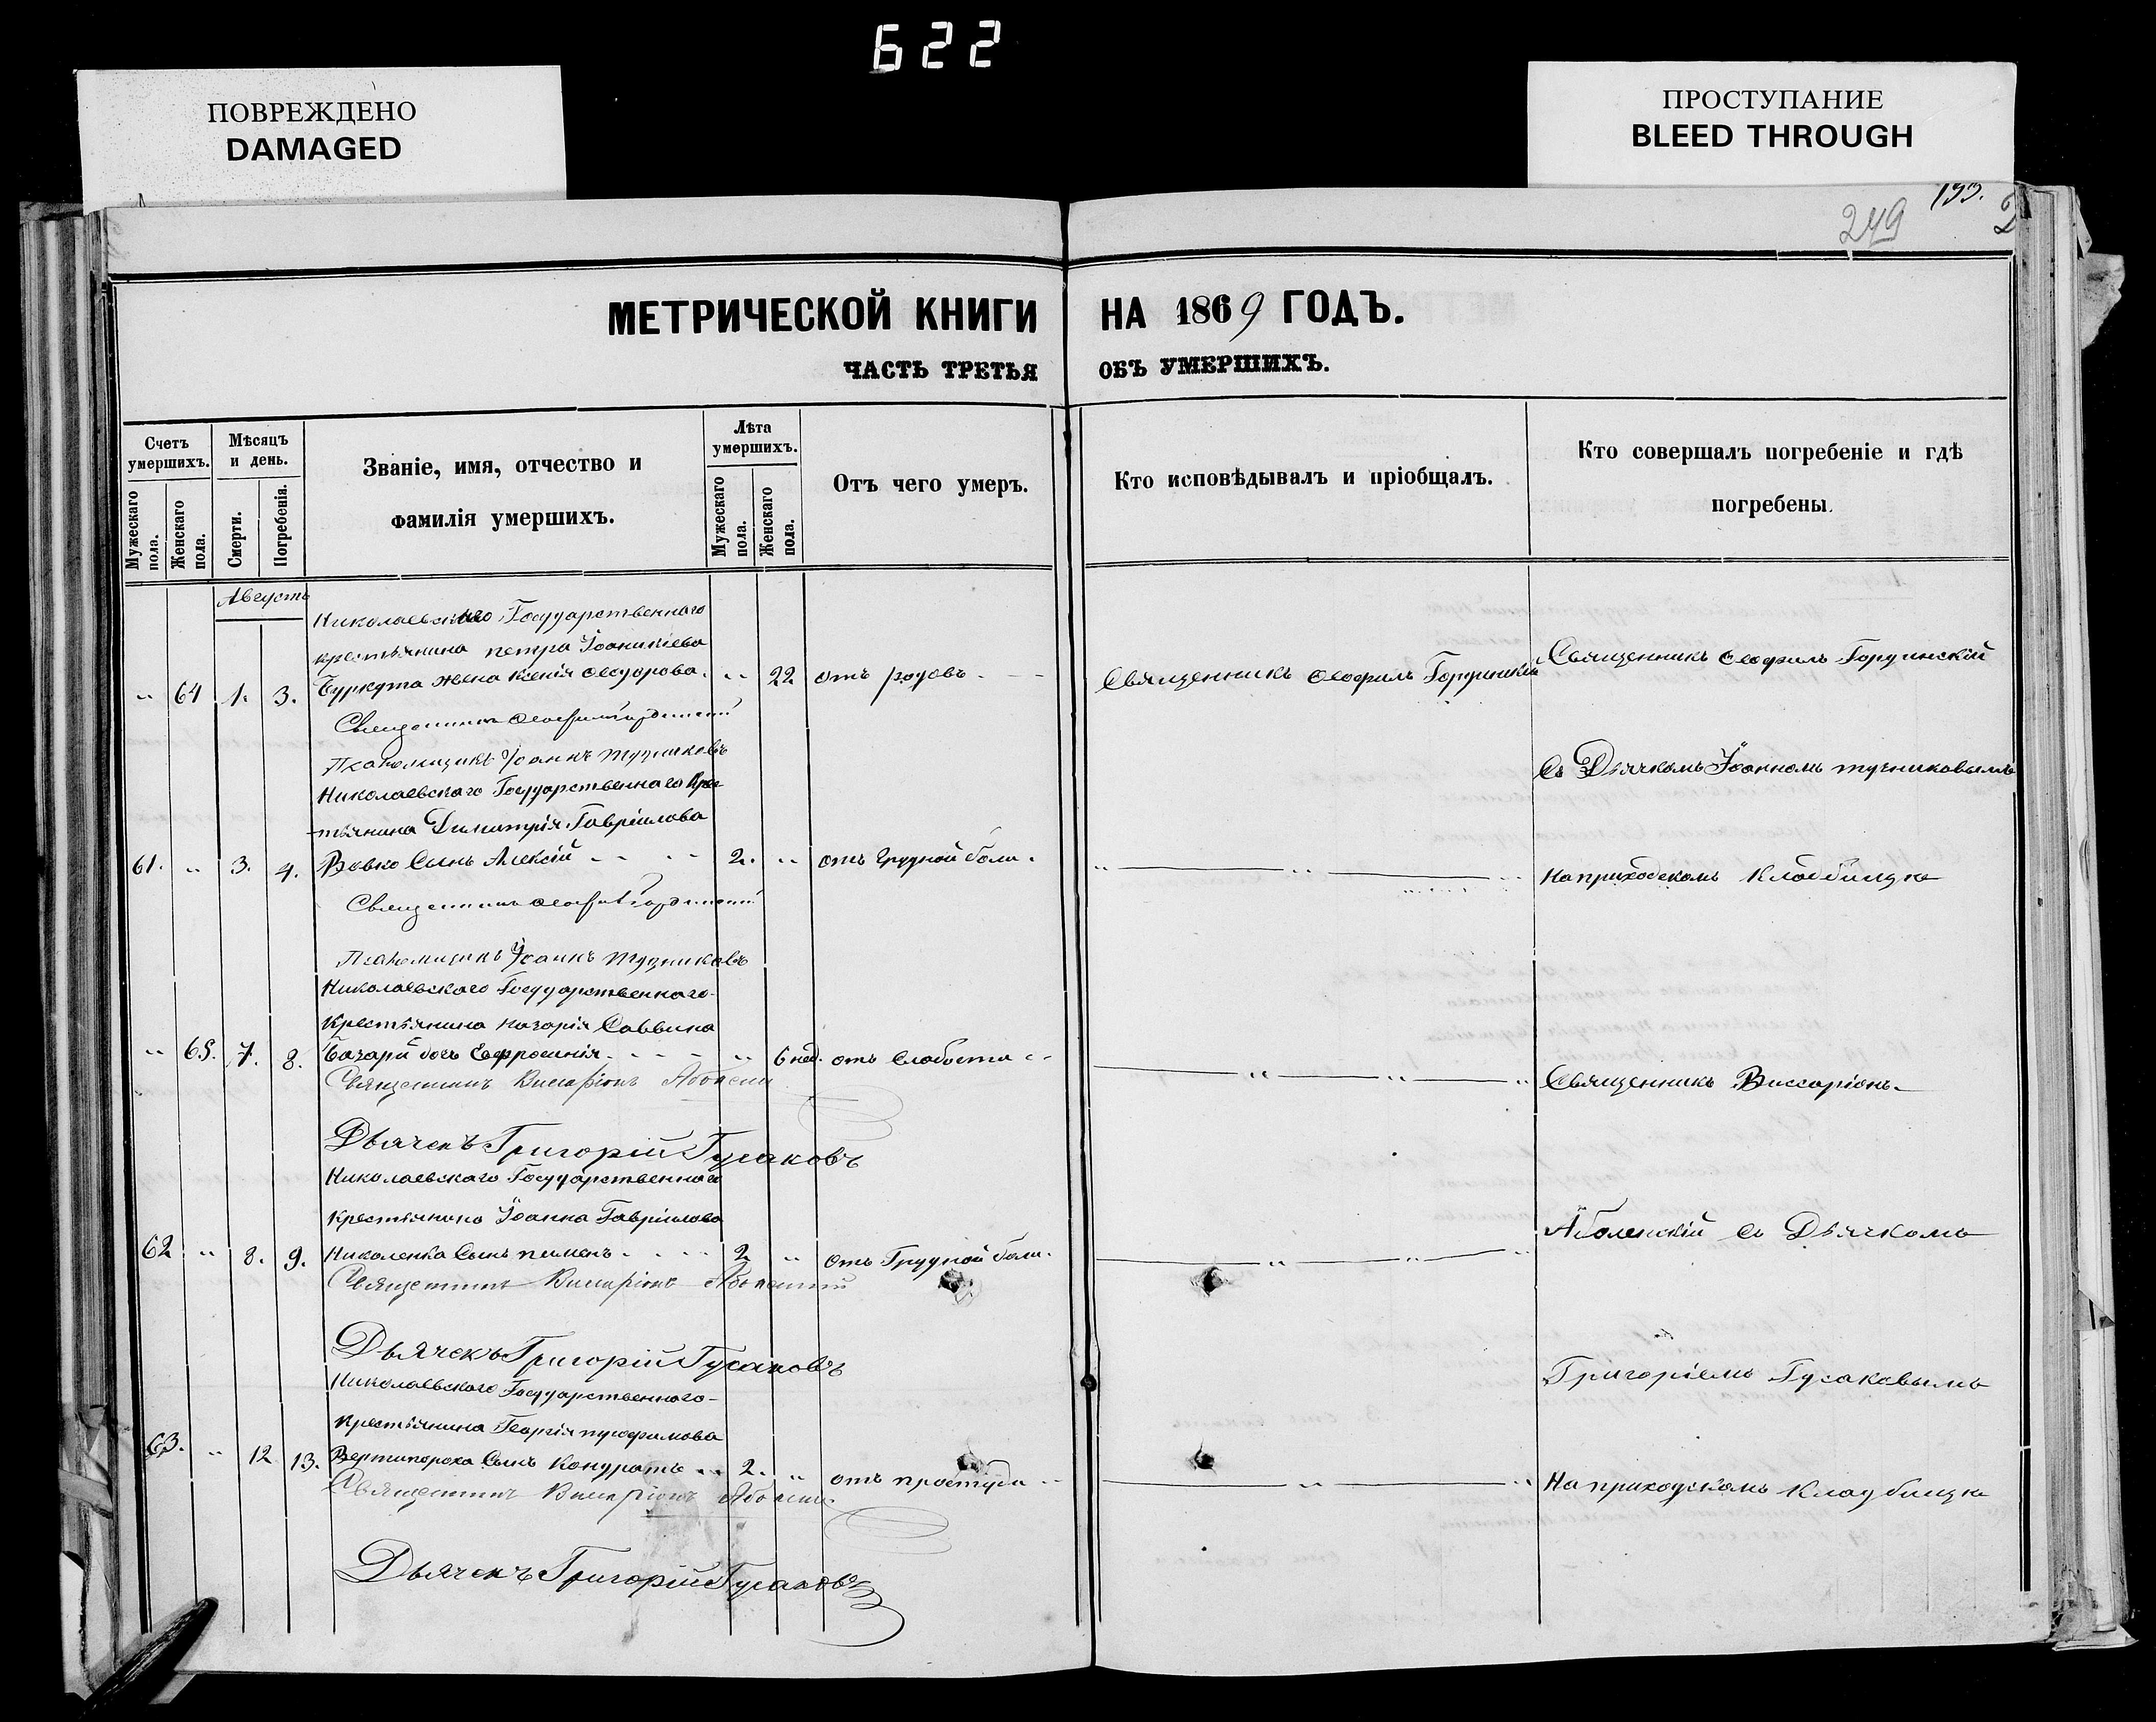 622
ПОВРЕЖДЕНО
DAMAGED
ПРОСТУПАНИЕ
BLEED THROUGH
249
МЕТРИЧЕСКОЙ КНИГИ НА 1869 ГОДЪ.
ЧАСТЬ ТРЕТЬЯ ОБЪ УМЕРШИХЪ.
Счетъ умершихъ.
Мужескаго пола.
Женскаго пола.
Мѣсяцъ и день.
Смерти.
Погребенія.
Званіе, имя, отчество и
фамилія умершихъ.
Лѣта умершихъ.
Мужескаго пола.
Женскаго пола.
Отъ чего умеръ.
Кто исповѣдывалъ и пріобщалъ.
Кто совершалъ погребеніе и гдѣ
погребены.
Августъ
Николаевскаго Государственнаго
крестьянина петра Іоаникіева
" 64 1. 3. Буркута жена Ксенія Ѳеодорова. " 22 отъ родовъ Священникъ Ѳеофилъ Гординскій Священникъ Ѳеофилъ Гординскій
Священникъ Ѳеофилъ Гординскій
Псаломщикъ Іоаннъ Тучниковъ
Съ Дьячкомъ Іоанномъ тучниковымъ
Николаевскаго Государственнаго Крес-
тьянина Димитрія Гавріилова
61. " 3. 4. Вовко Сынъ Алексій 2. " отъ Грудной боли. " " " На приходскомъ Кладбищѣ
Священникъ Ѳеофилъ Гординскій
Псаломщикъ Іоаннъ Тучниковъ
Николаевскаго Государственнаго
Крестьянина Назарія Саввина
" 65. 7. 8. дочь Евфросинія " 6 нед. отъ Слабости " " " Священникъ Виссаріонъ
Священникъ Виссаріонъ
Дьячекъ Григорій Гусаковъ
Николаевскаго Государственнаго
Крестьянина Іоанна Гавріилова
Аболенскій съ Дьячкомъ
62 " 8. 9. Николенка Сынъ пименъ 2 " отъ Грудной боли. " "
Священникъ Виссаріонъ Аболенскій
Дьячекъ Григорій Гусаковъ
Григоріемъ Гусаковымъ
Николаевскаго Государственнаго
Крестьянина Георгія
63. " 12 13. Вертипороха Сынъ Кондратъ 2. " отъ простуди " " На приходскомъ Кладбищѣ
Священникъ Виссаріонъ
Дьячекъ Григорій Гусаковъ